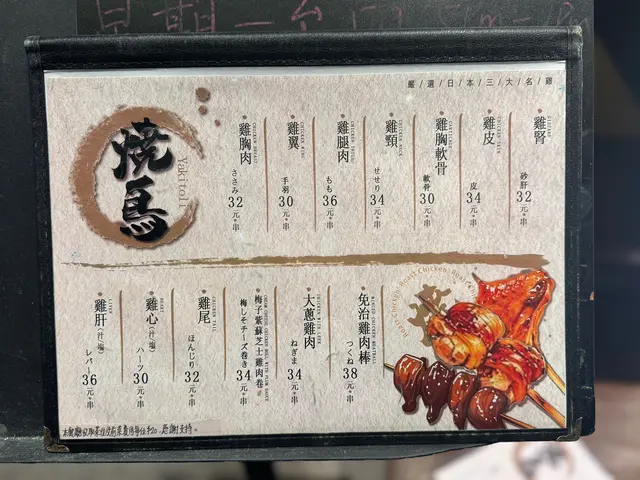 嚴/選/日/本/三/大/名/雞
燒鳥
Yakitori
雞腎
砂肝
32元・串
雞皮
皮
34元・串
雞胸軟骨
軟骨
30元・串
雞頸
せせり
34元・串
雞腿肉
もも
36元・串
雞翼
手羽
30元・串
雞胸肉
ささみ
32元・串
免治雞肉棒
つくね
38元・串
大蔥雞肉
ねぎま
34元・串
梅子紫蘇芝士雞肉卷
梅しそチーズ巻き
34元・串
雞尾
ぼんじり
32元・串
雞心(汁/塩)
ハーツ
30元・串
雞肝(汁/塩)
レバー
36元・串
Roast Chicken